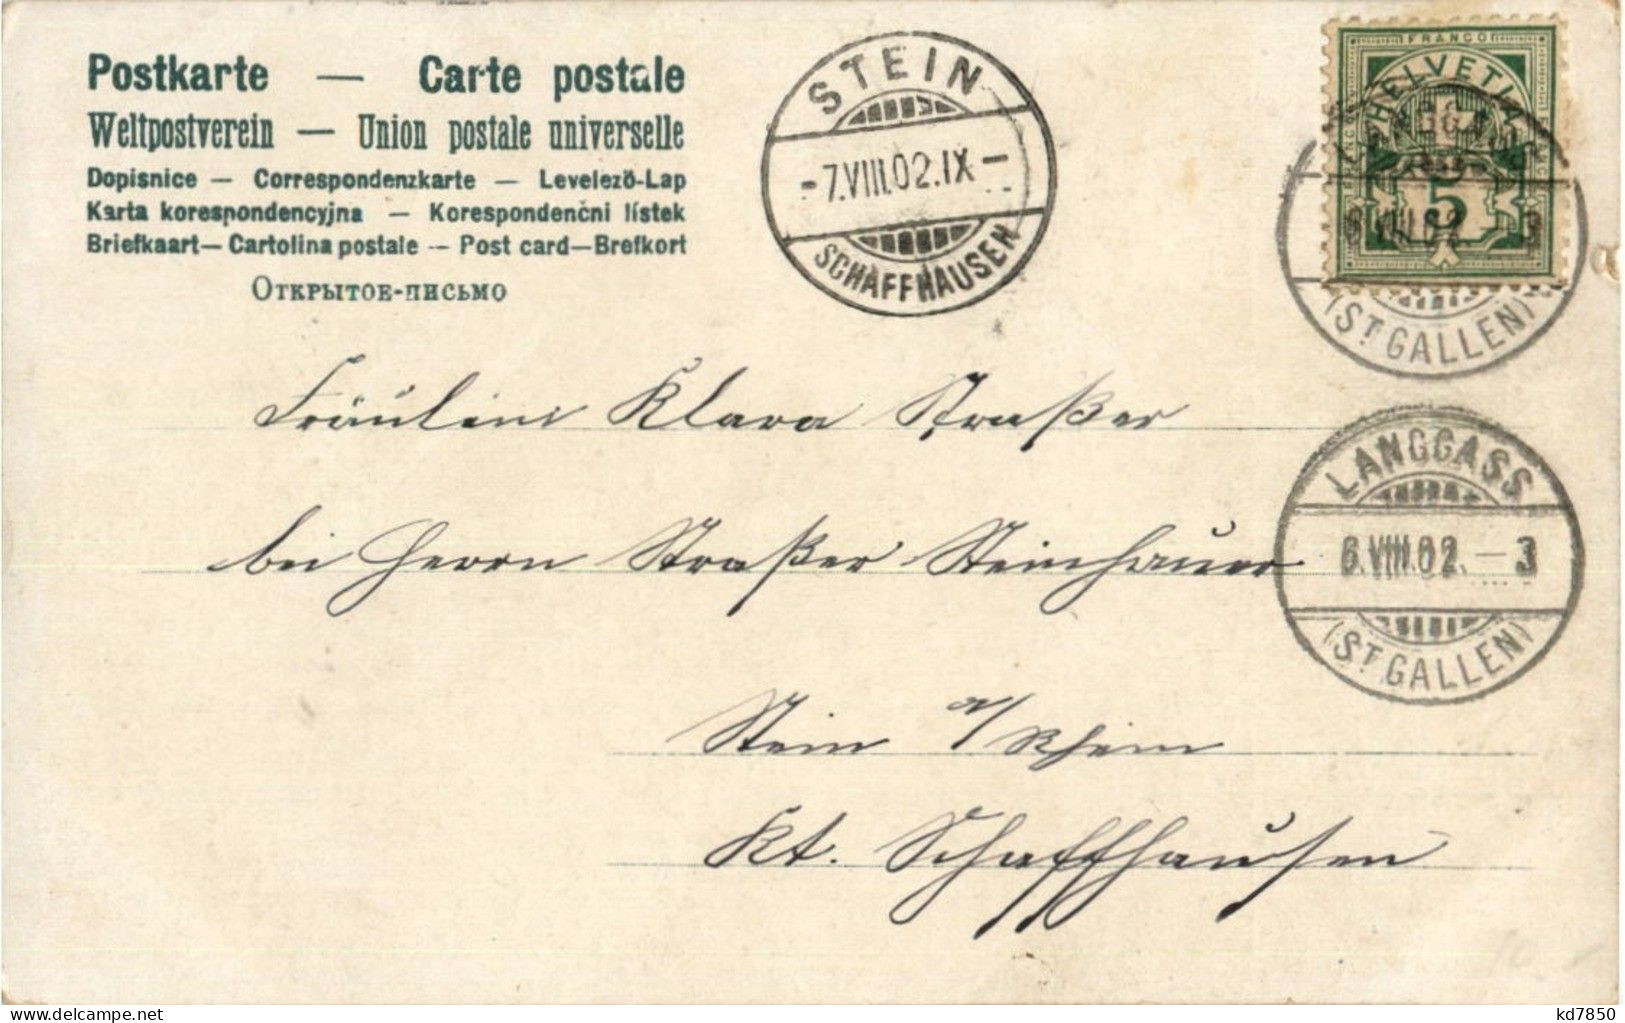 Postkarte — Carte postale
Weltpostverein — Union postale universelle
Dopisnice — Correspondenzkarte — Levelező-Lap
Karta korespondencyjna — Korespondenčni lístek
Briefkaart — Cartolina postale — Post card — Brefkort
Открытое-письмо
STEIN
-7.VIII.02.IX-
SCHAFFHAUSEN
FRANCO
HELVETIA
5
(ST GALLEN)
Fräulein Klara Straßer
LANGGASS
6.VIII.02. — 3
(ST GALLEN)
bei Herrn Straßer Steinhauer
Stein a/Rhein
Kt. Schaffhausen
10.-
kd7850
delcampe.net